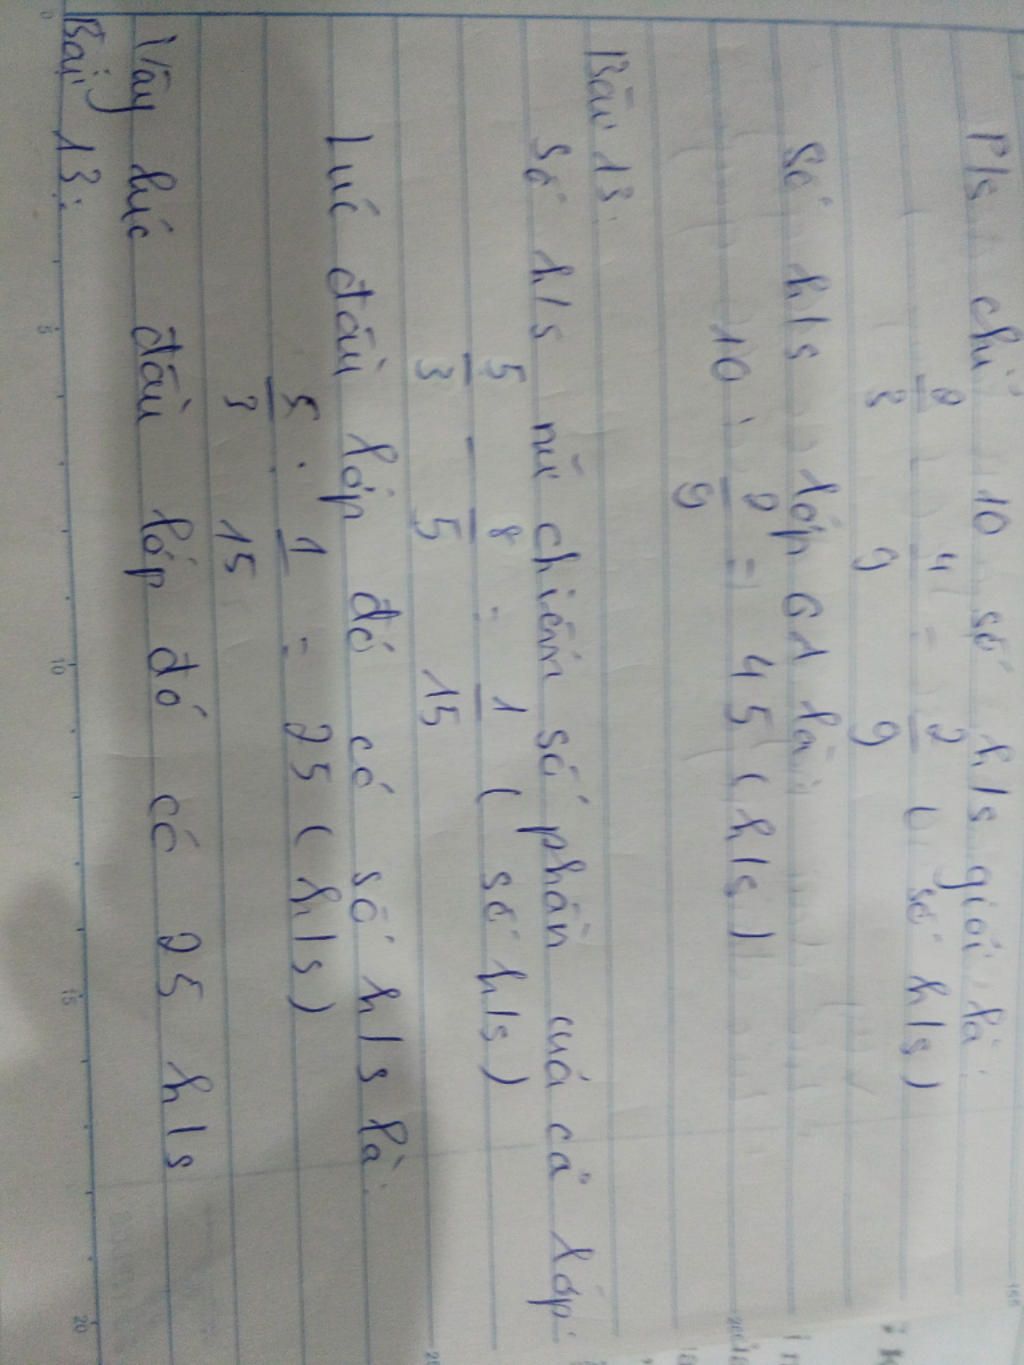 P/s chỉ 10 số h/s giỏi là:
2/3 4/9 = 2/9 (số h/s)
Số h/s lớp 61 là:
10 : 2/9 = 45 (h/s)
Bài 13.
Số h/s nữ chiếm số phần của cả lớp.
5/3 - 8/5 = 1/15 (số h/s)
Lúc đầu lớp đó có số h/s là.
5/3 . 1/15 = 25 (h/s)
Vậy lúc đầu lớp đó có 25 h/s
Bài 13: